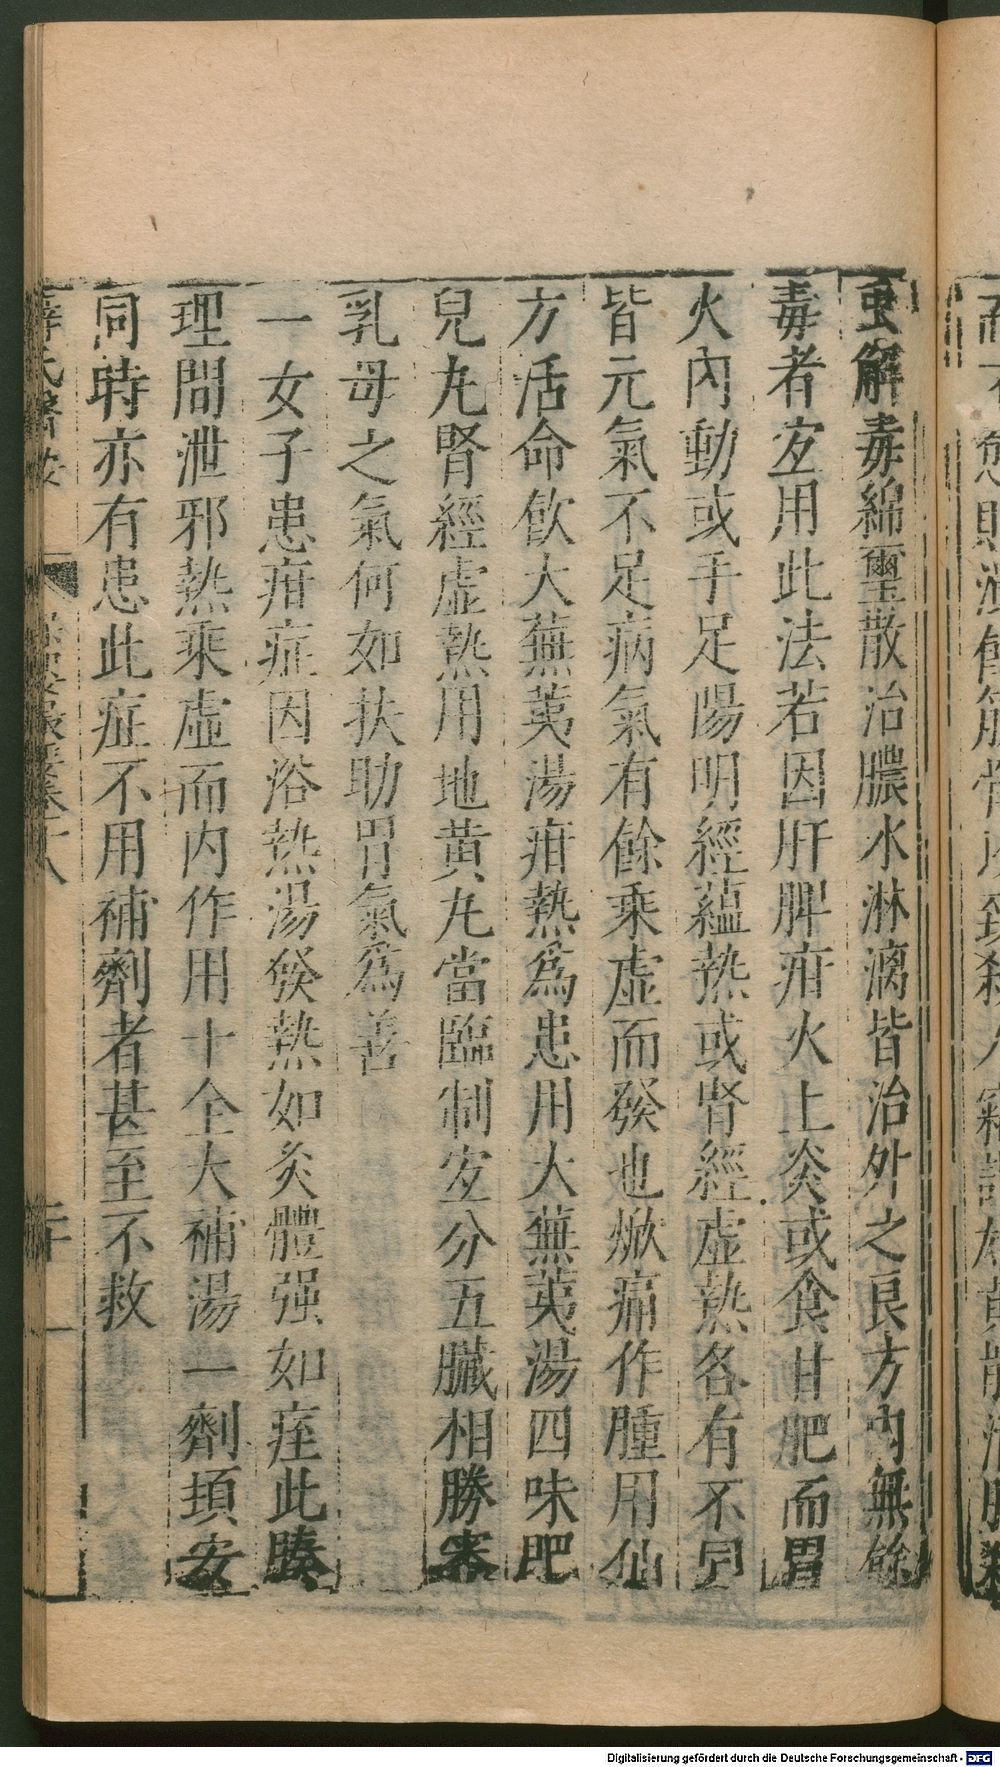 虫解毒綿璽散治膿水淋漓皆治外之良方內無餘
毒者宐用此法若因肝脾疳火上炎或食甘肥而胃
火內動或手足陽明經蘊熱或腎經虛熱各有不同
皆元氣不足病氣有餘乘虛而發也焮痛作腫用仙
方活命飲大蕪荑湯疳熱爲患用大蕪荑湯四味肥
兒丸腎經虛熱用地黃丸當臨制宐分五臟相勝審
乳母之氣何如扶助胃氣爲善
一女子患疳症因浴熱湯發熱如灸體强如痓此腠
理間泄邪熱乘虛而內作用十全大補湯一劑頓安
同時亦有患此症不用補劑者甚至不救
薛氏醫按
卷十八
二十
Digitalisierung gefördert durch die Deutsche Forschungsgemeinschaft - DFG